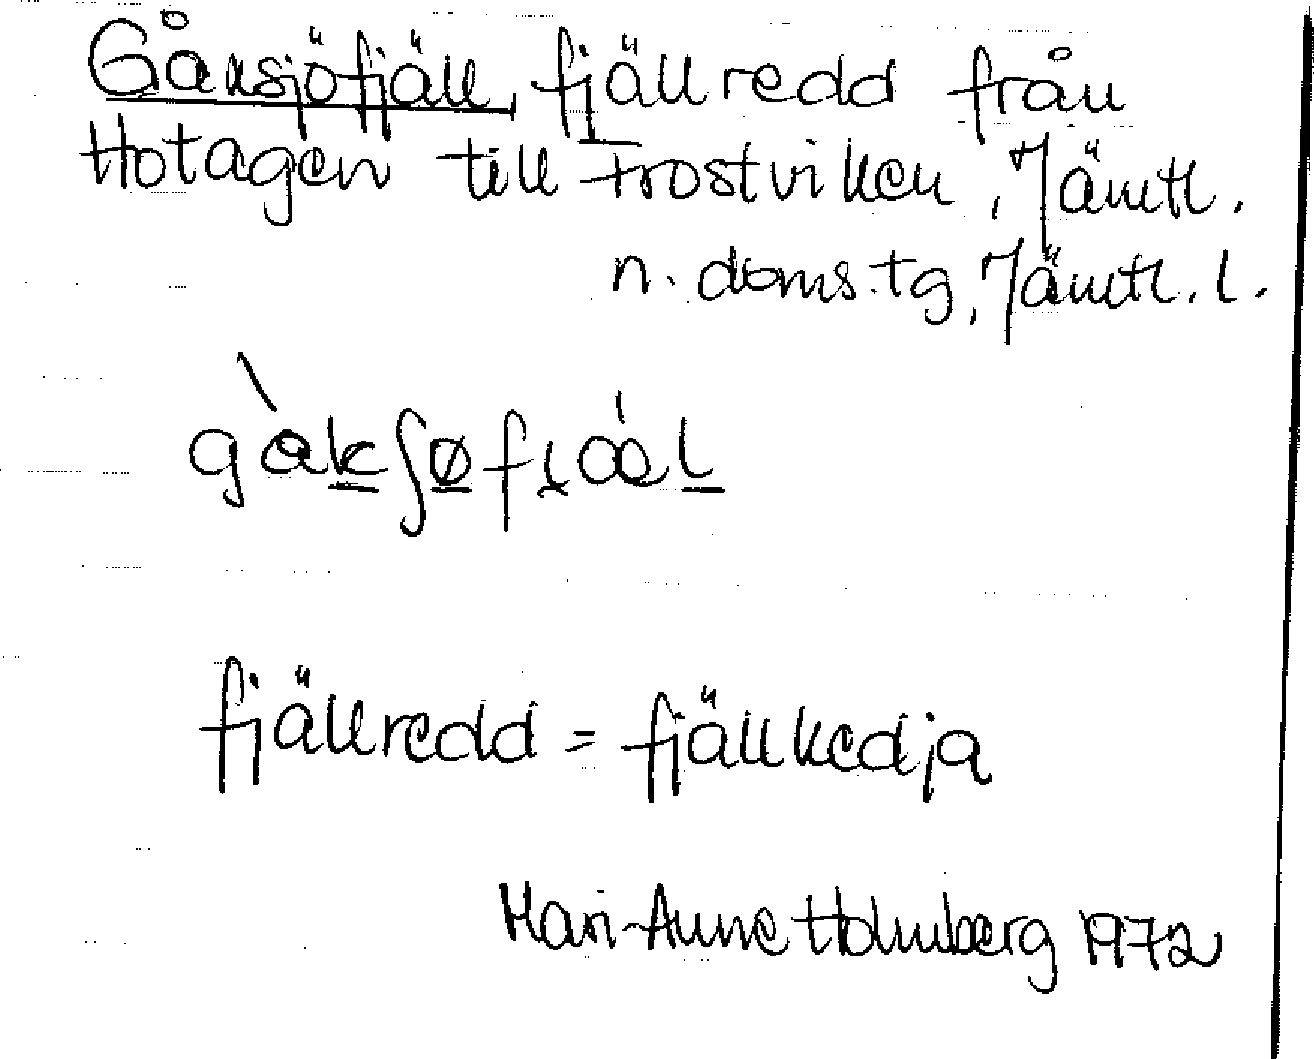 Gåxsjöfjäll, fjällredd från
Hotagen till Frostviken, Jämtl.
n. doms.tg, Jämtl. l.
fjällredd = fjällkedja
Mari-Anne Holmberg 1972